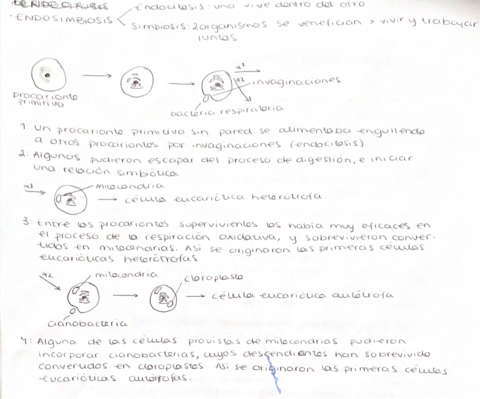 Endocitosis: una vive dentro del otro
-ENDOSIMBIOSIS
Simpiosis: 2 organismos se venefician > vivir y trabajar
juntos
x1
x2
invaginaciones
procarionte
primitivo
bacteria respiratoria
1 Un procarionte primitivo sin pared se alimentaba engullendo
a otros procariontes por invaginaciones (endocitosis)
2: Algunos pudieron escapar del proceso de digestión, e iniciar
una relación simbiótica
x1
mitocondria
célula eucariótica heterótrofa
3: Entre los procariontes supervivientes los había muy eficaces en
el proceso de la respiración oxidativa, y sobrevivieron conver-
tidos en mitocondrias. Así se originaron las primeras células
eucarióticas heterótrofas
x2
mitocondria
cloroplasto
célula eucariótica autótrofa
cianobacteria
4: Alguna de las células provistas de mitocondrias pudieron
incorporar cianobacterias, cuyos descendientes han sobrevivido
convertidos en cloroplastos. Así se originaron las primeras células
eucarióticas autótrofas.